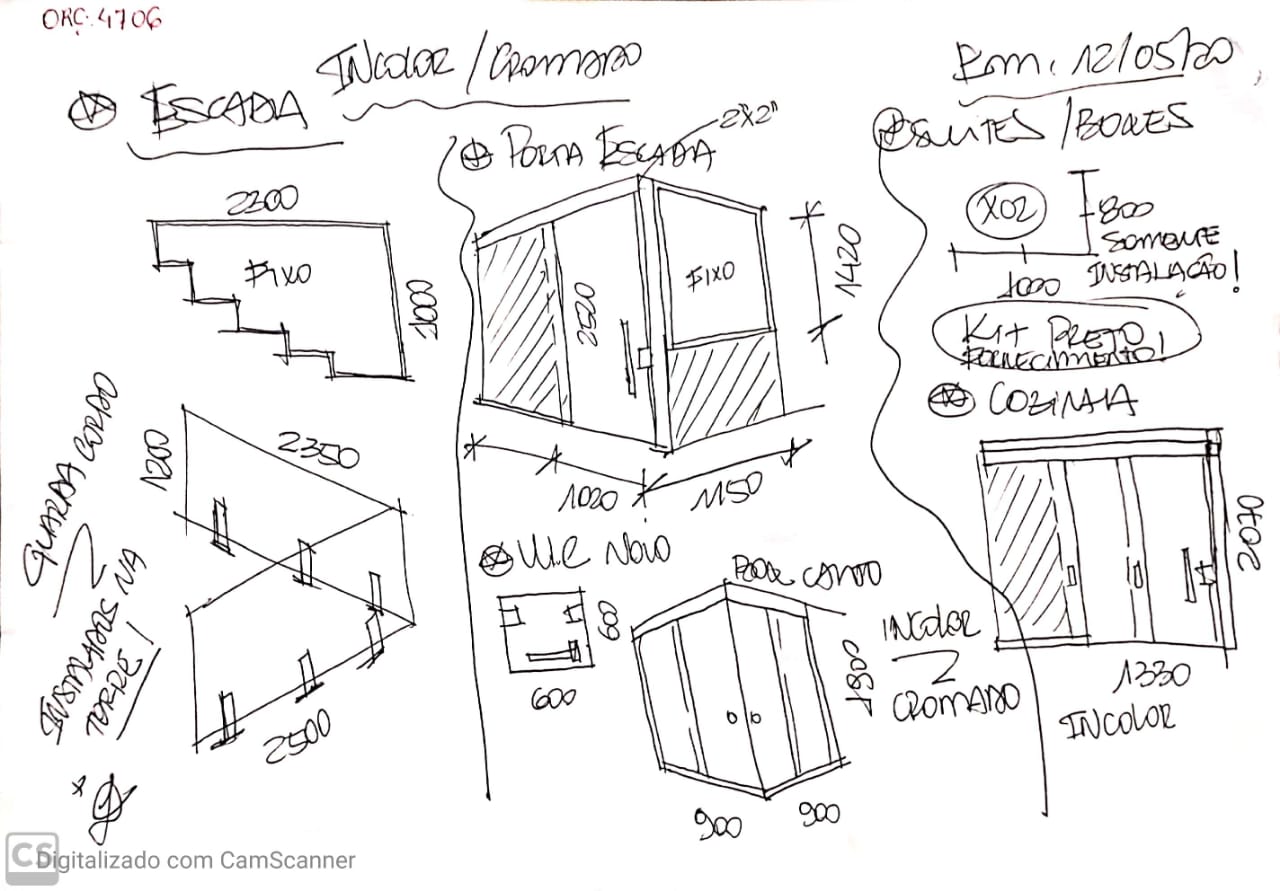 ORÇ. 4706
INCOLOR / CROMADO
Em. 12/05/20
ESCADA
2300
FIXO
1000
GUARDA CORPO
INSTALADOS NA
TORRE!
1200
2350
2500
PORTA ESCADA
2"X2"
2520
FIXO
1420
1020
1150
W.C NOVO
600
600
BOX CANTO
1800
900
900
INCOLOR
CROMADO
SUITES / BOXES
X02
800
SOMENTE
INSTALAÇÃO!
1000
KIT PRETO
FORNECIMENTO!
COZINHA
2070
1330
INCOLOR
CS
Digitalizado com CamScanner